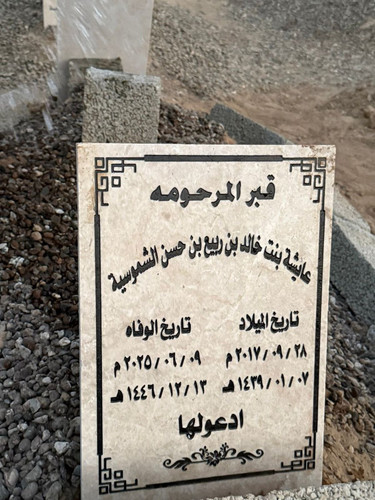 قبر المرحومه
عايشة بنت خالد بن ربيع بن حسن الشموسية
تاريخ الميلاد تاريخ الوفاه
٢٠١٧/٠٩/٢٨ م ٢٠٢٥/٠٦/٠٩ م
١٤٣٩/٠١/٠٧ هـ ١٤٤٦/١٢/١٣ هـ
ادعولها